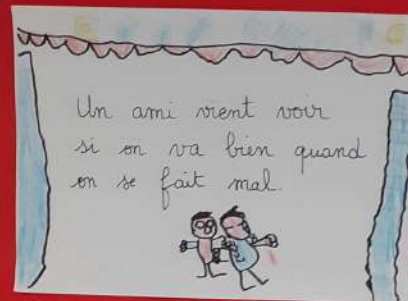 Un ami vient voir
si on va bien quand
on se fait mal.